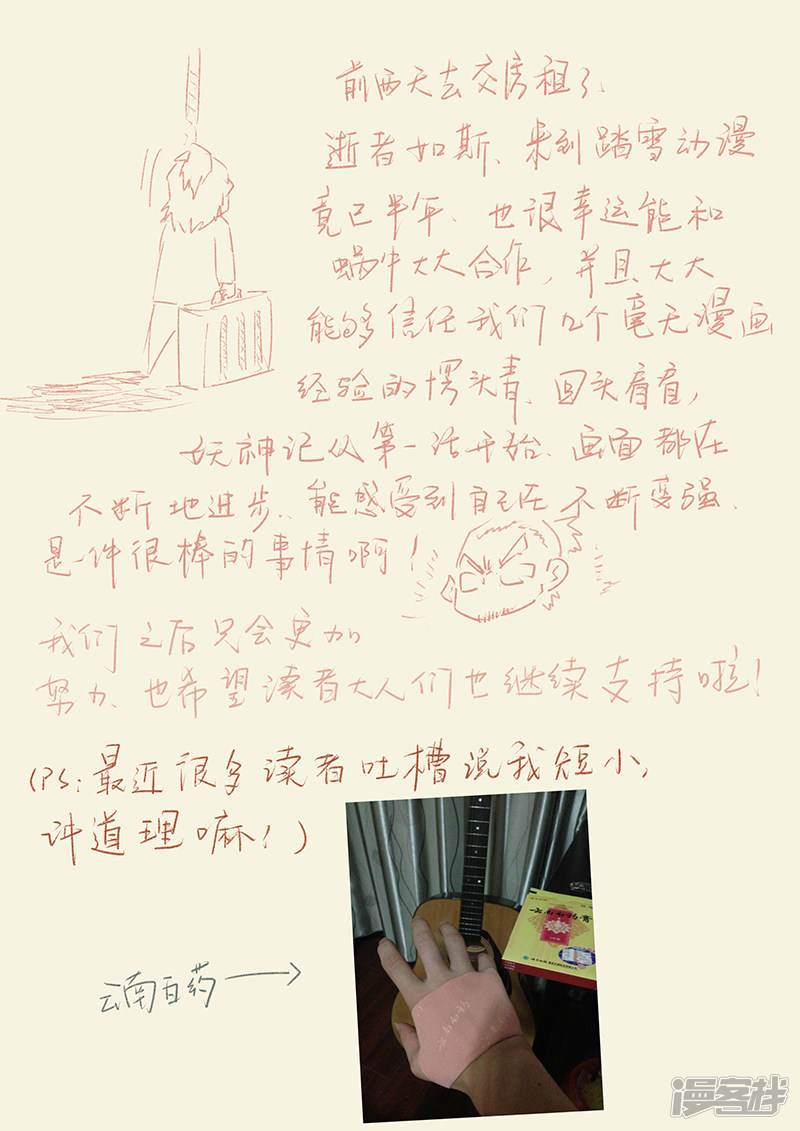 前两天去交房租了、
逝者如斯、来到踏雪动漫
竟已半年、也很幸运能和
蜗牛大大合作，并且大大
能够信任我们几个毫无漫画
经验的愣头青、回头看看，
妖神记从第一话开始、画面都在
不断地进步、能感受到自己在不断变强、
是一件很棒的事情啊！
我们之后只会更加
努力、也希望读者大人们也继续支持啦！
(PS:最近很多读者吐槽说我短小，
讲道理嘛！)
云南白药
云南白药膏
漫客栈